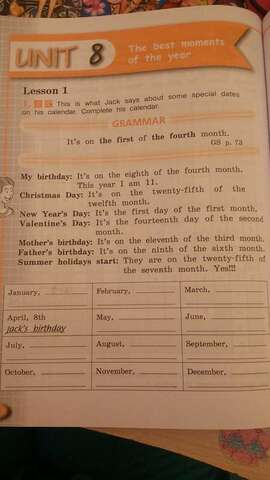 UNIT 8
The best moments
of the year
Lesson 1
1. This is what Jack says about some special dates
on his calendar. Complete his calendar.
GRAMMAR
It's on the first of the fourth month.
GS p. 73
My birthday: It's on the eighth of the fourth month.
This year I am 11.
Christmas Day: It's on the twenty-fifth of the
twelfth month.
New Year's Day: It's the first day of the first month.
Valentine's Day: It's the fourteenth day of the second
month.
Mother's birthday: It's on the eleventh of the third month.
Father's birthday: It's on the ninth of the sixth month.
Summer holidays start: They are on the twenty-fifth of
the seventh month. Yes!!!
January, February, March,
April, 8th May, June,
Jack's birthday
July, August, September,
October, November, December,